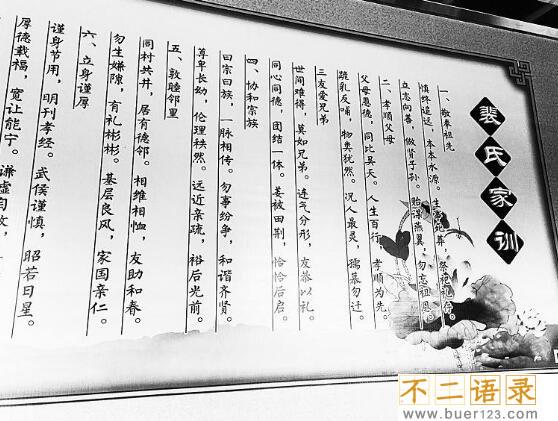 裴氏家训
一、敬奉祖先
慎终追远，本本水源。生事死葬，祭祀礼存。
立志向善，做贤子孙。贻谋燕翼，勿忘祖恩。
二、孝顺父母
父母恩德，同比昊天。人生百行，孝顺为先。
跪乳反哺，物类犹然。况人最灵，孺慕勿迁。
三友爱兄弟
世间难得，莫如兄弟。连气分形，友恭以礼。
同心同德，团结一体。姜被田荆，恰恰后启。
四、协和宗族
曰宗曰族，一脉相传。勿事纷争，和谐齐贤。
尊卑长幼，伦理秩然。远近亲疏，裕后光前。
五、敦睦邻里
同村共井，居有德邻。相维相恤，友助和春。
勿生嫌隙，有礼彬彬。基层良风，家国亲仁。
六、立身谨厚
谨身节用，明刊孝经。武侯谨慎，昭若日星。
厚德载福，宽让能宁。谦虚自牧，
不二语录
www.buer123.com